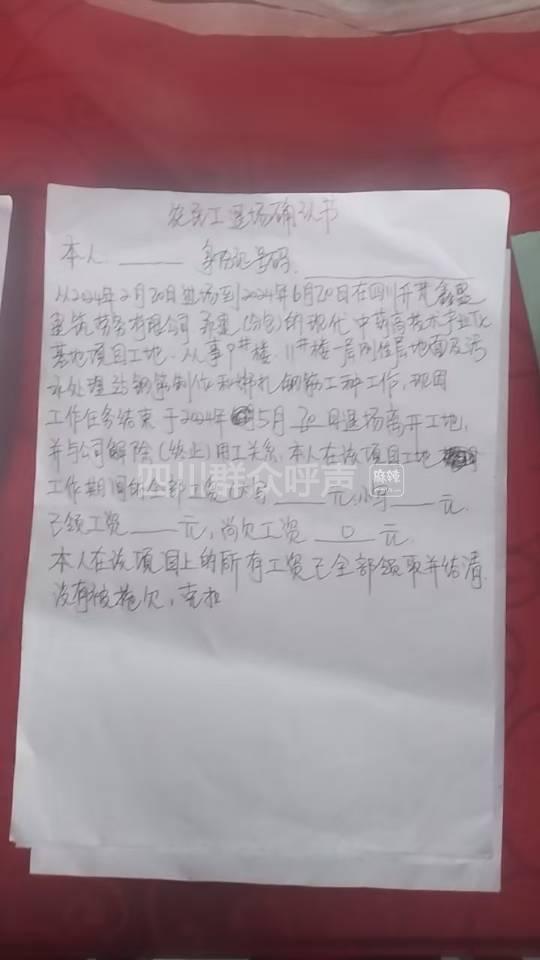 农民工退场确认书
本人 身份证号码
从2024年2月20日进场到2024年6月20日在四川开
建筑劳务有限公司承建(分包)的现代中药高技术产业化
基地项目工地.从事9#楼.11#楼一层刚性层地面及污
水处理站钢筋制作和绑扎钢筋工种工作,现因
工作任务结束于2024年5月20日退场离开工地,
并与公司解除(终止)用工关系.本人在该项目工地
工作期间的全部工资(大写 元.小写 元.
已领工资 元,尚欠工资 0 元.
本人在该项目上的所有工资已全部领取并结清.
没有被拖欠,克扣
四川群众呼声
麻辣